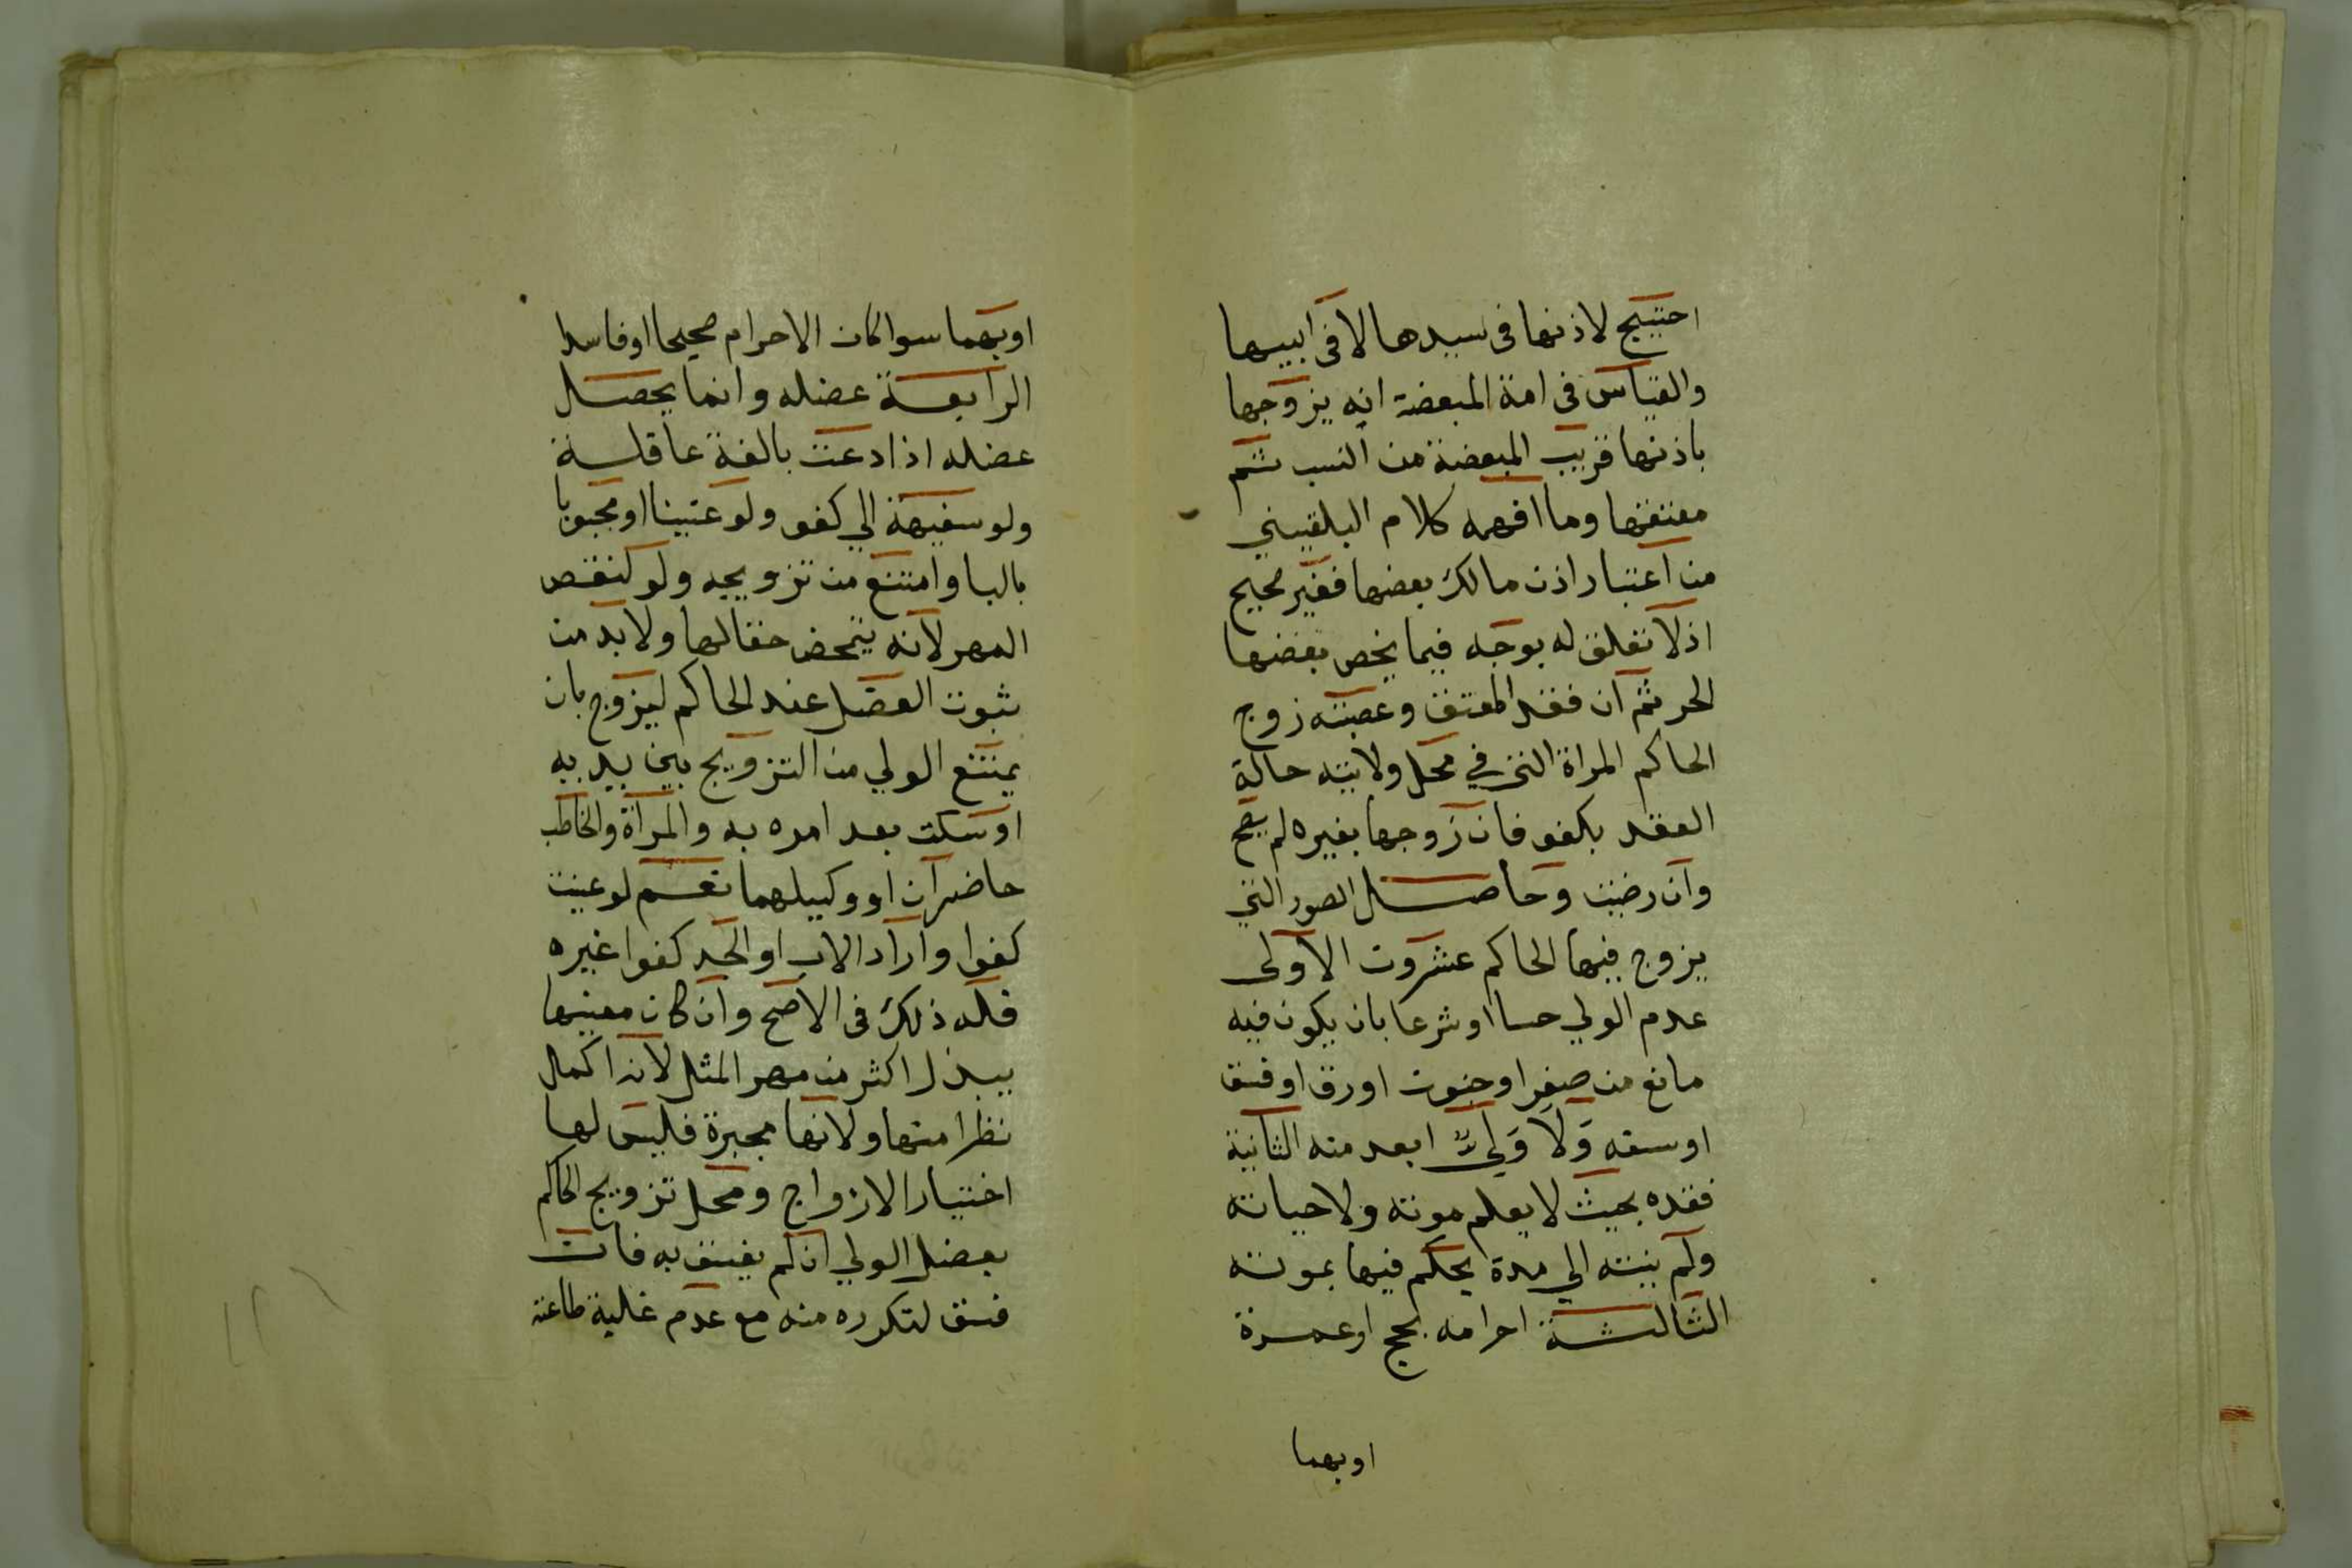 احتيج لاذنها فى سيدها لا فى ابيها
والقياس فى امة المبعضة انه يزوجها
باذنها قريب المبعضة من النسب ثم
معتقها وما افهمه كلام البلقيني
من اعتبار اذن مالك بعضها فغير صحيح
اذ لا تعلق له بوجه فيما يخص بعضها
الحر ثم ان فقد المعتق وعصبته زوج
الحاكم المراة التي في محل ولايته حالة
العقد بكفو فان زوجها بغيره لم يصح
وان رضيت وحاصل الصور التي
يزوج فيها الحاكم عشرون الاولى
عدم الولي حسا او شرعا بان يكون فيه
مانع من صغر او جنون او رق او فسق
او سفه وَلَا وَلِيٌّ ابعد منه الثانية
فقده بحيث لا يعلم موته ولا حياته
ولم ينته الي مدة يحكم فيها بموته
الثالثة احرامه بحج او عمرة
او بهما
او بهما سوا كان الاحرام صحيحا او فاسدا
الرابعة عضله وانما يحصل
عضله اذا دعت بالغة عاقلة
ولو سفيهة الي كفو ولو عنينا او مجبوبا
بالبا وامتنع من تزويجه ولو لنقص
المهر لانه يتمحض حقا لها ولا بد من
ثبوت العضل عند الحاكم ليزوج بان
يمتنع الولي من التزويج بين يديه
او سكت بعد امره به والمراة والخاطب
حاضران او وكيلهما نعم لو عينت
كفوا واراد الاب او الجد كفوا غيره
فله ذلك فى الاصح وان كان معينها
يبذل اكثر من مهر المثل لانه اكمل
نظرا منها ولانها مجبرة فليس لها
اختيار الازواج ومحل تزويج الحاكم
بعضل الولي ان لم يفسق به فان
فسق لتكرره منه مع عدم غلبة طاعته